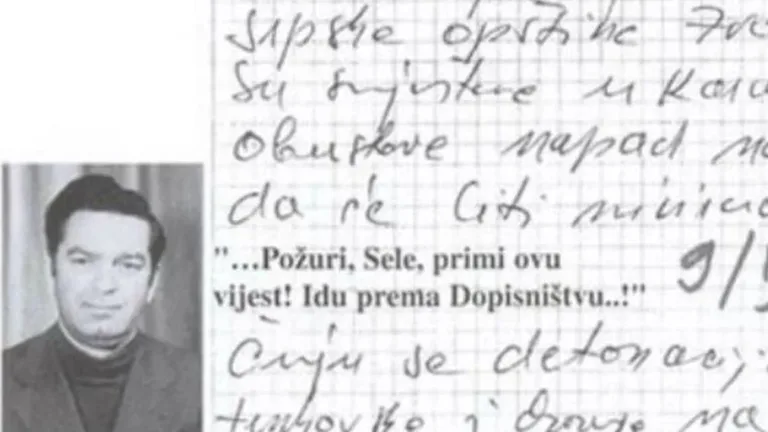 srpske opštine Zvo
su smještene u Kara
obustave napad na
da će biti
"...Požuri, Sele, primi ovu
vijest! Idu prema Dopisništvu..!" 9/
Čuju se detonacij